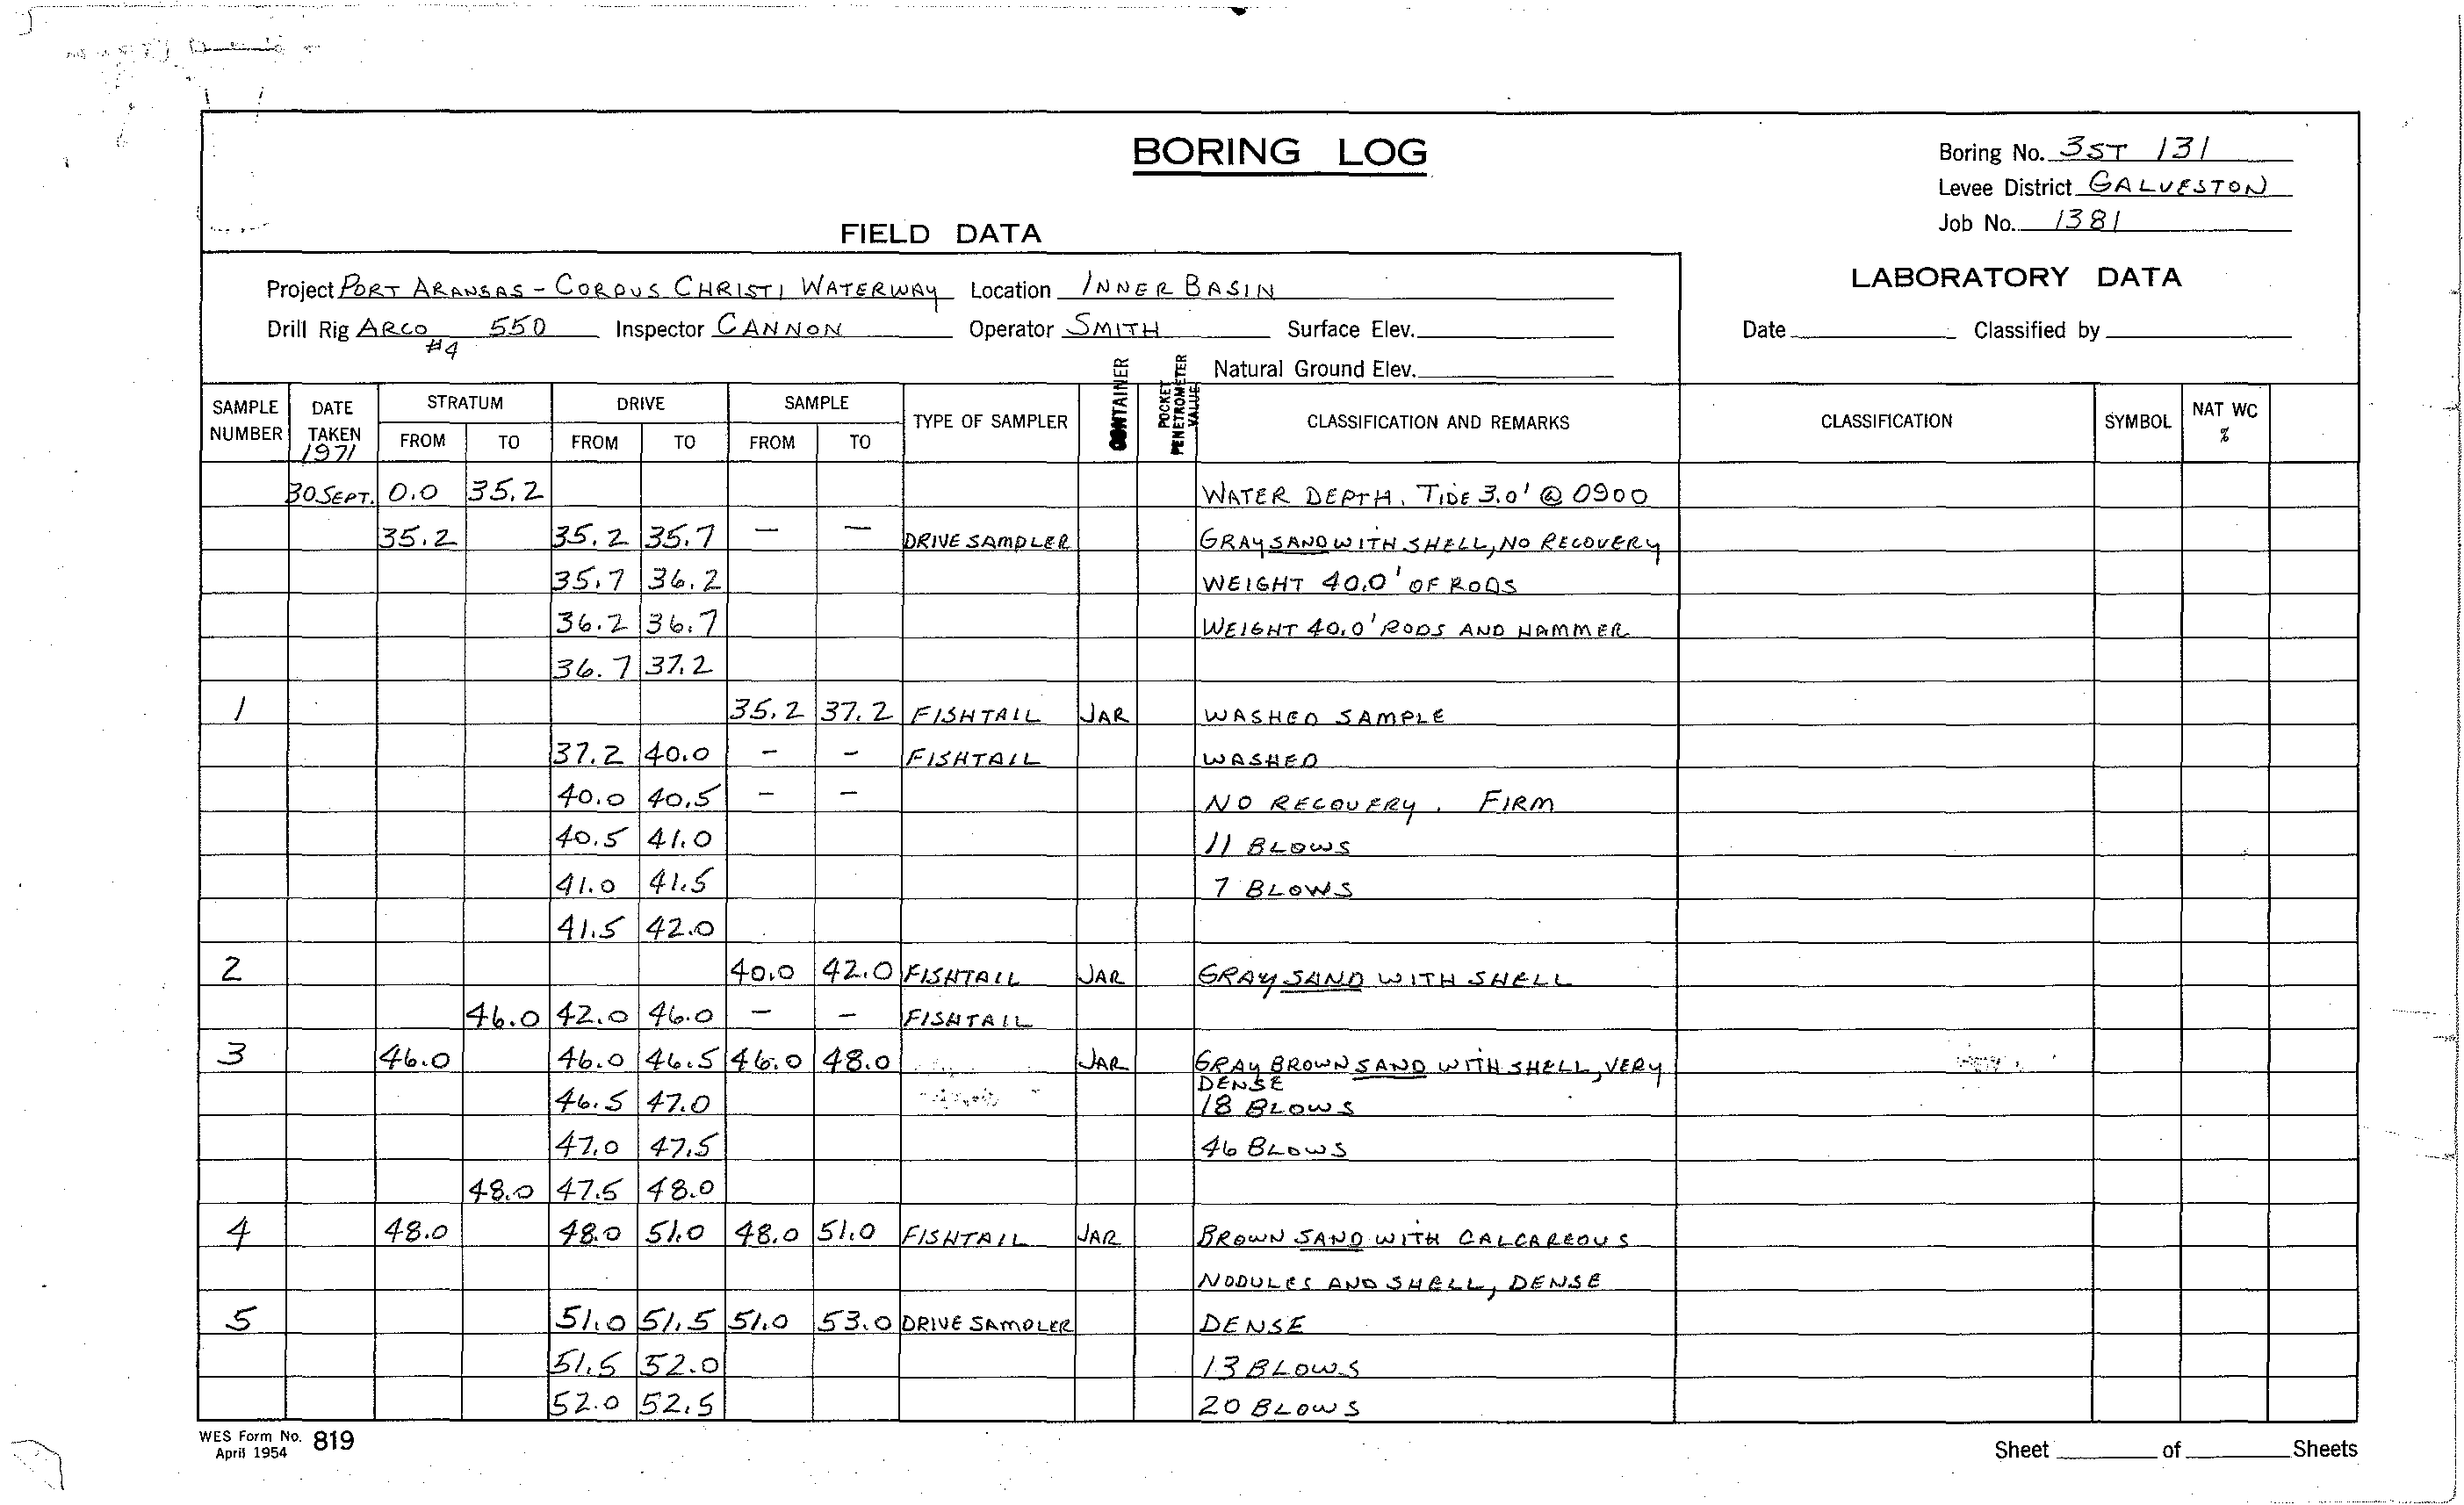 BORING LOG
Boring No. 3ST 131
Levee District GALVESTON
Job No. 1381
FIELD DATA
LABORATORY DATA
Project PORT ARANSAS - CORPUS CHRISTI WATERWAY Location INNER BASIN
Drill Rig ARCO #4 550 Inspector CANNON Operator SMITH Surface Elev.
Date Classified by
Natural Ground Elev.
SAMPLE NUMBER DATE TAKEN 1971 STRATUM FROM TO DRIVE FROM TO SAMPLE FROM TO TYPE OF SAMPLER CONTAINER POCKET PENETROMETER VALUE CLASSIFICATION AND REMARKS CLASSIFICATION SYMBOL NAT WC %
30 SEPT. 0.0 35.2 WATER DEPTH. TIDE 3.0' @ 0900
35.2 35.2 35.7 — — DRIVE SAMPLER GRAY SAND WITH SHELL, NO RECOVERY
35.7 36.2 WEIGHT 40.0' OF RODS
36.2 36.7 WEIGHT 40.0' RODS AND HAMMER
36.7 37.2
1 35.2 37.2 FISHTAIL JAR WASHED SAMPLE
37.2 40.0 - - FISHTAIL WASHED
40.0 40.5 - - NO RECOVERY. FIRM
40.5 41.0 11 BLOWS
41.0 41.5 7 BLOWS
41.5 42.0
2 40.0 42.0 FISHTAIL JAR GRAY SAND WITH SHELL
46.0 42.0 46.0 - - FISHTAIL
3 46.0 46.0 46.5 46.0 48.0 JAR GRAY BROWN SAND WITH SHELL, VERY
DENSE
46.5 47.0 18 BLOWS
47.0 47.5 46 BLOWS
48.0 47.5 48.0
4 48.0 48.0 51.0 48.0 51.0 FISHTAIL JAR BROWN SAND WITH CALCAREOUS
NODULES AND SHELL, DENSE
5 51.0 51.5 51.0 53.0 DRIVE SAMPLER DENSE
51.5 52.0 13 BLOWS
52.0 52.5 20 BLOWS
WES Form No. 819
April 1954
Sheet of Sheets